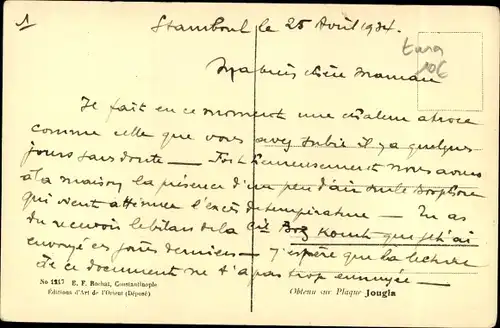 1
Stamboul le 25 Août 1934.
106
chère Maman
Il fait en ce moment une chaleur atroce
comme celle que vous avez subie il y a quelques
jours sans doute — Fort heureusement nous avons
à la maison la présence d'un peu d'air sur le Bosphore
qui vient atténuer l'excès de température — Tu as
du recevoir le bilan de la Cie que je t'ai
envoyé ces jours derniers — j'espère que la lecture
de ce document ne t'a pas trop ennuyée —
No 1217 E. F. Rochat, Constantinople
Editions d'Art de l'Orient (Déposé)
Obtenu sur Plaque Jougla